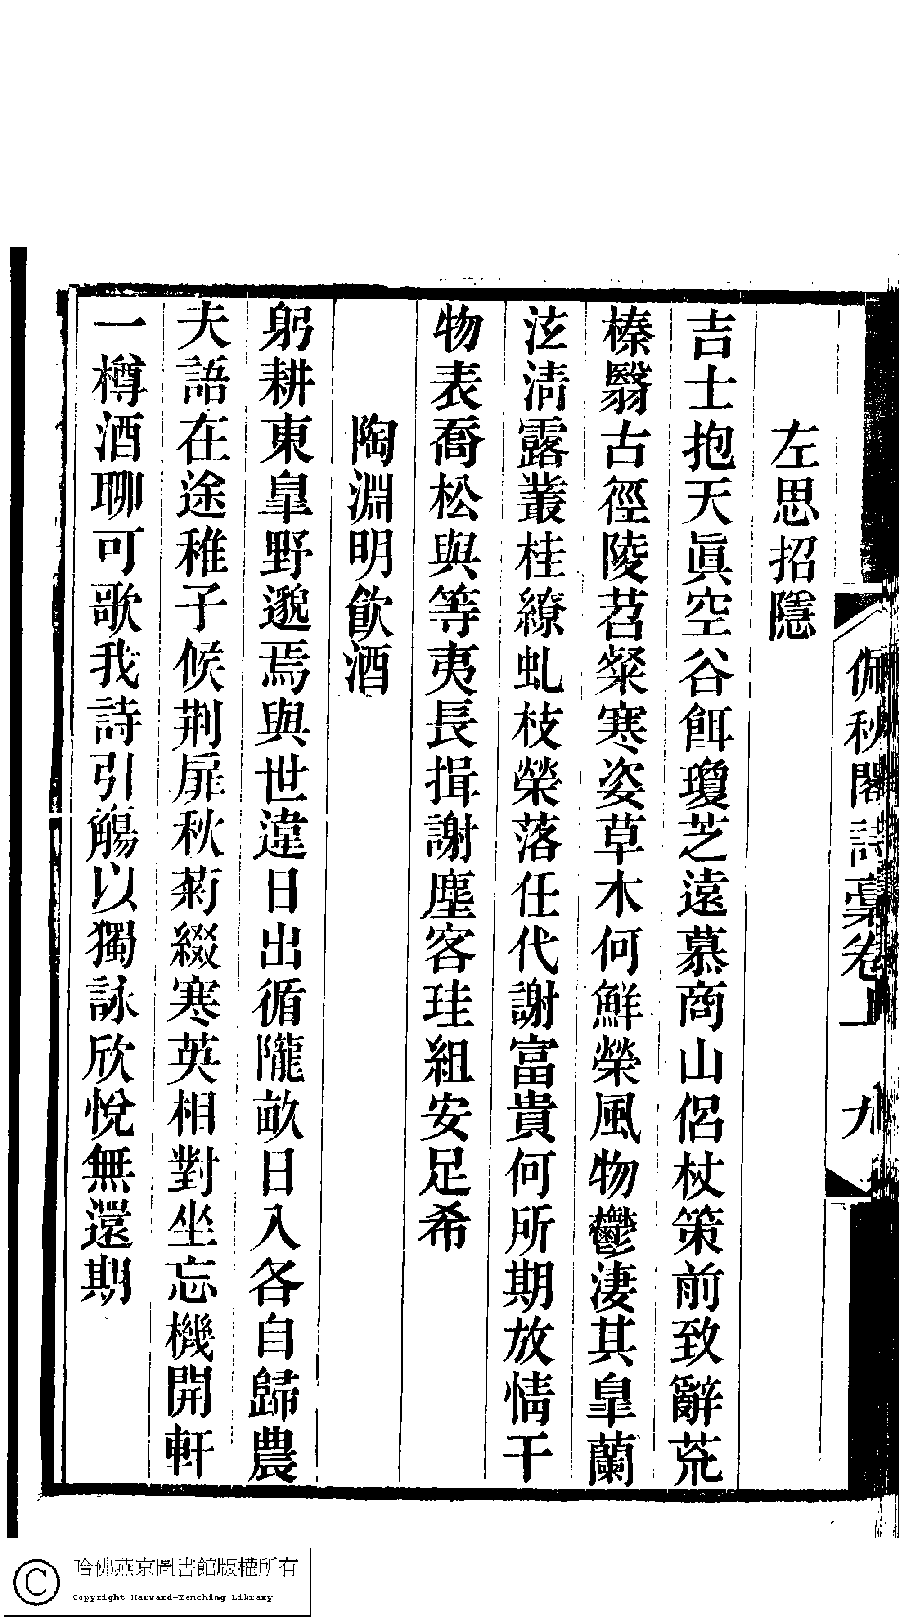 左思招隱
吉士抱天眞空谷餌瓊芝遠慕商山侶杖策前致辭荒
榛翳古徑陵苕粲寒姿草木何鮮榮風物鬱淒其皐蘭
泫淸露叢桂繚虬枝榮落任代謝富貴何所期放情干
物表喬松與等夷長揖謝塵客珪組安足希
陶淵明飮酒
躬耕東皐野邈焉與世違日出循隴畝日入各自歸農
夫語在途稚子候荆扉秋菊綴寒英相對坐忘機開軒
一樽酒聊可歌我詩引觴以獨詠欣悅無還期
佩秋閣詩稾卷上 九
哈佛燕京圖書館版權所有
Copyright Harvard-Yenching Library